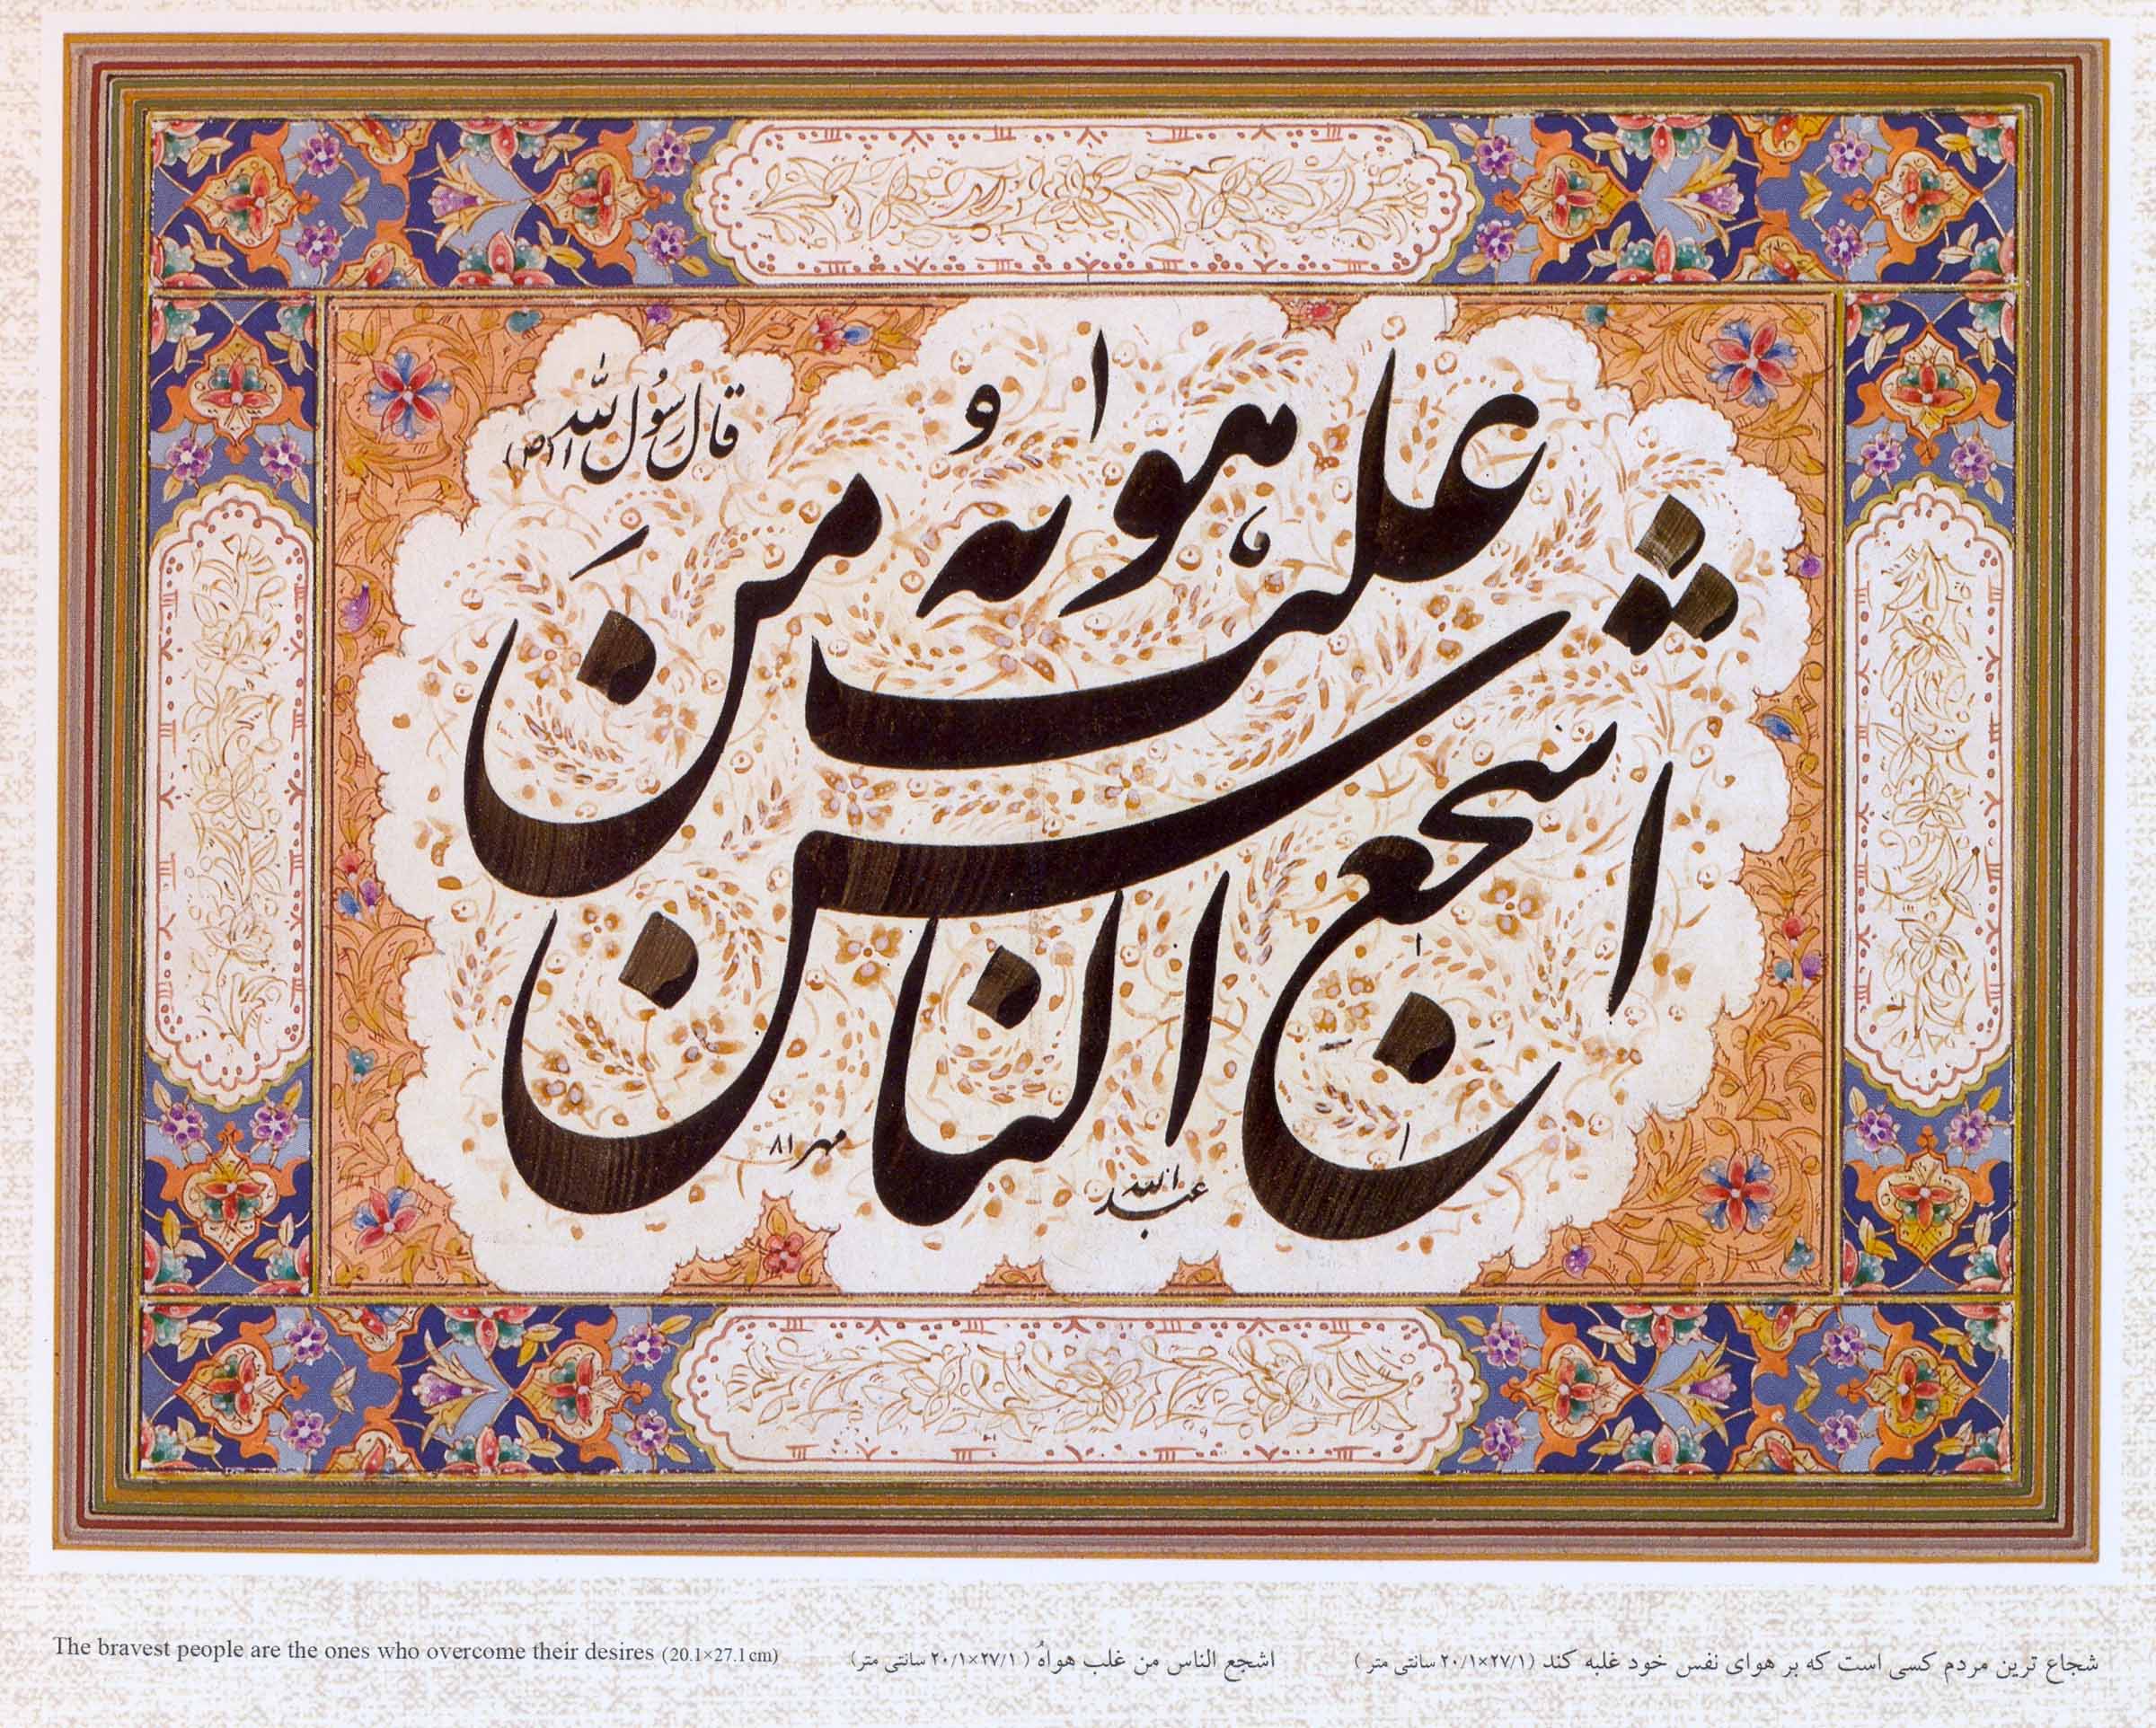 قال رسول الله (ص)
اشجع الناس من
غلب هویٰه
عبدالله
مهر ۸۱
The bravest people are the ones who overcome their desires (20.1×27.1 cm)
اشجع الناس من غلب هواهُ ( ۲۰/۱×۲۷/۱ سانتی متر)
شجاع ترین مردم کسی است که بر هوای نفس خود غلبه کند (۲۰/۱×۲۷/۱ سانتی متر )